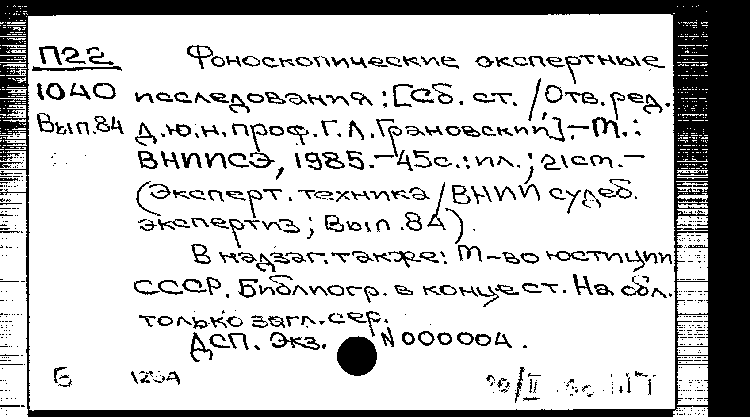 П22 Фоноскопические экспертные
1040 исследования: [Сб. ст. / Отв. ред.
Вып. 84 д.ю.н. проф. Г.Л. Грановский]. – М.:
ВНИИСЭ, 1985. – 45с.: ил.; 21см. –
(Эксперт. техника / ВНИИ судеб.
экспертиз; Вып. 84).
В надзаг. также: М-во юстиции
СССР. Библиогр. в конце ст. На обл.
только загл. сер.
ДСП. Экз. N 000004.
Б